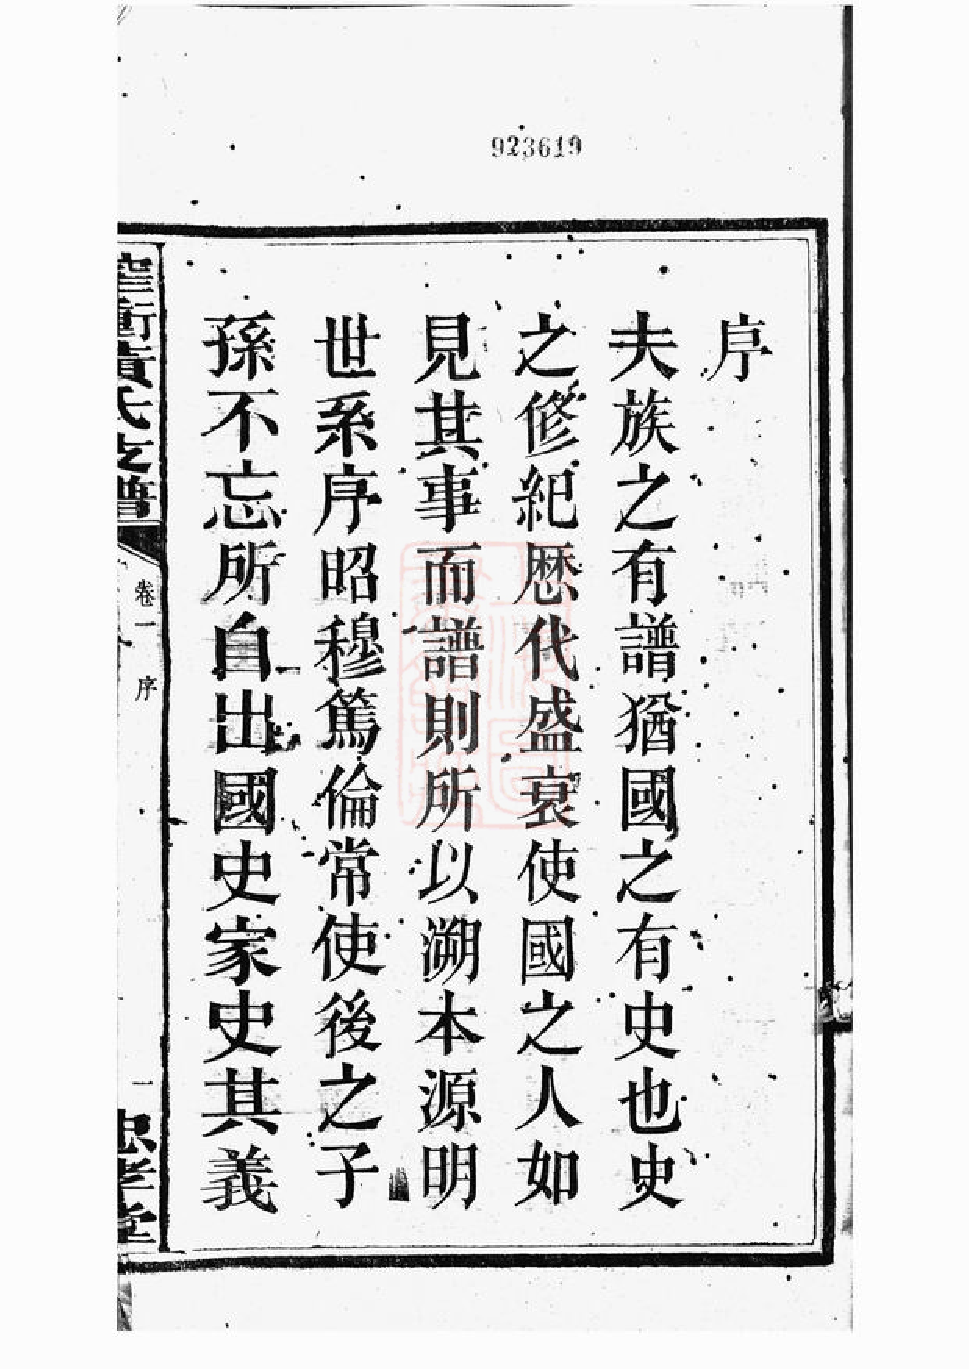 923619
序
夫族之有譜猶國之有史也史
之修紀歷代盛衰使國之人如
見其事而譜則所以溯本源明
世系序昭穆篤倫常使後之子
孫不忘所自出國史家史其義
衝黃氏支譜
卷一
序
一
忠孝堂